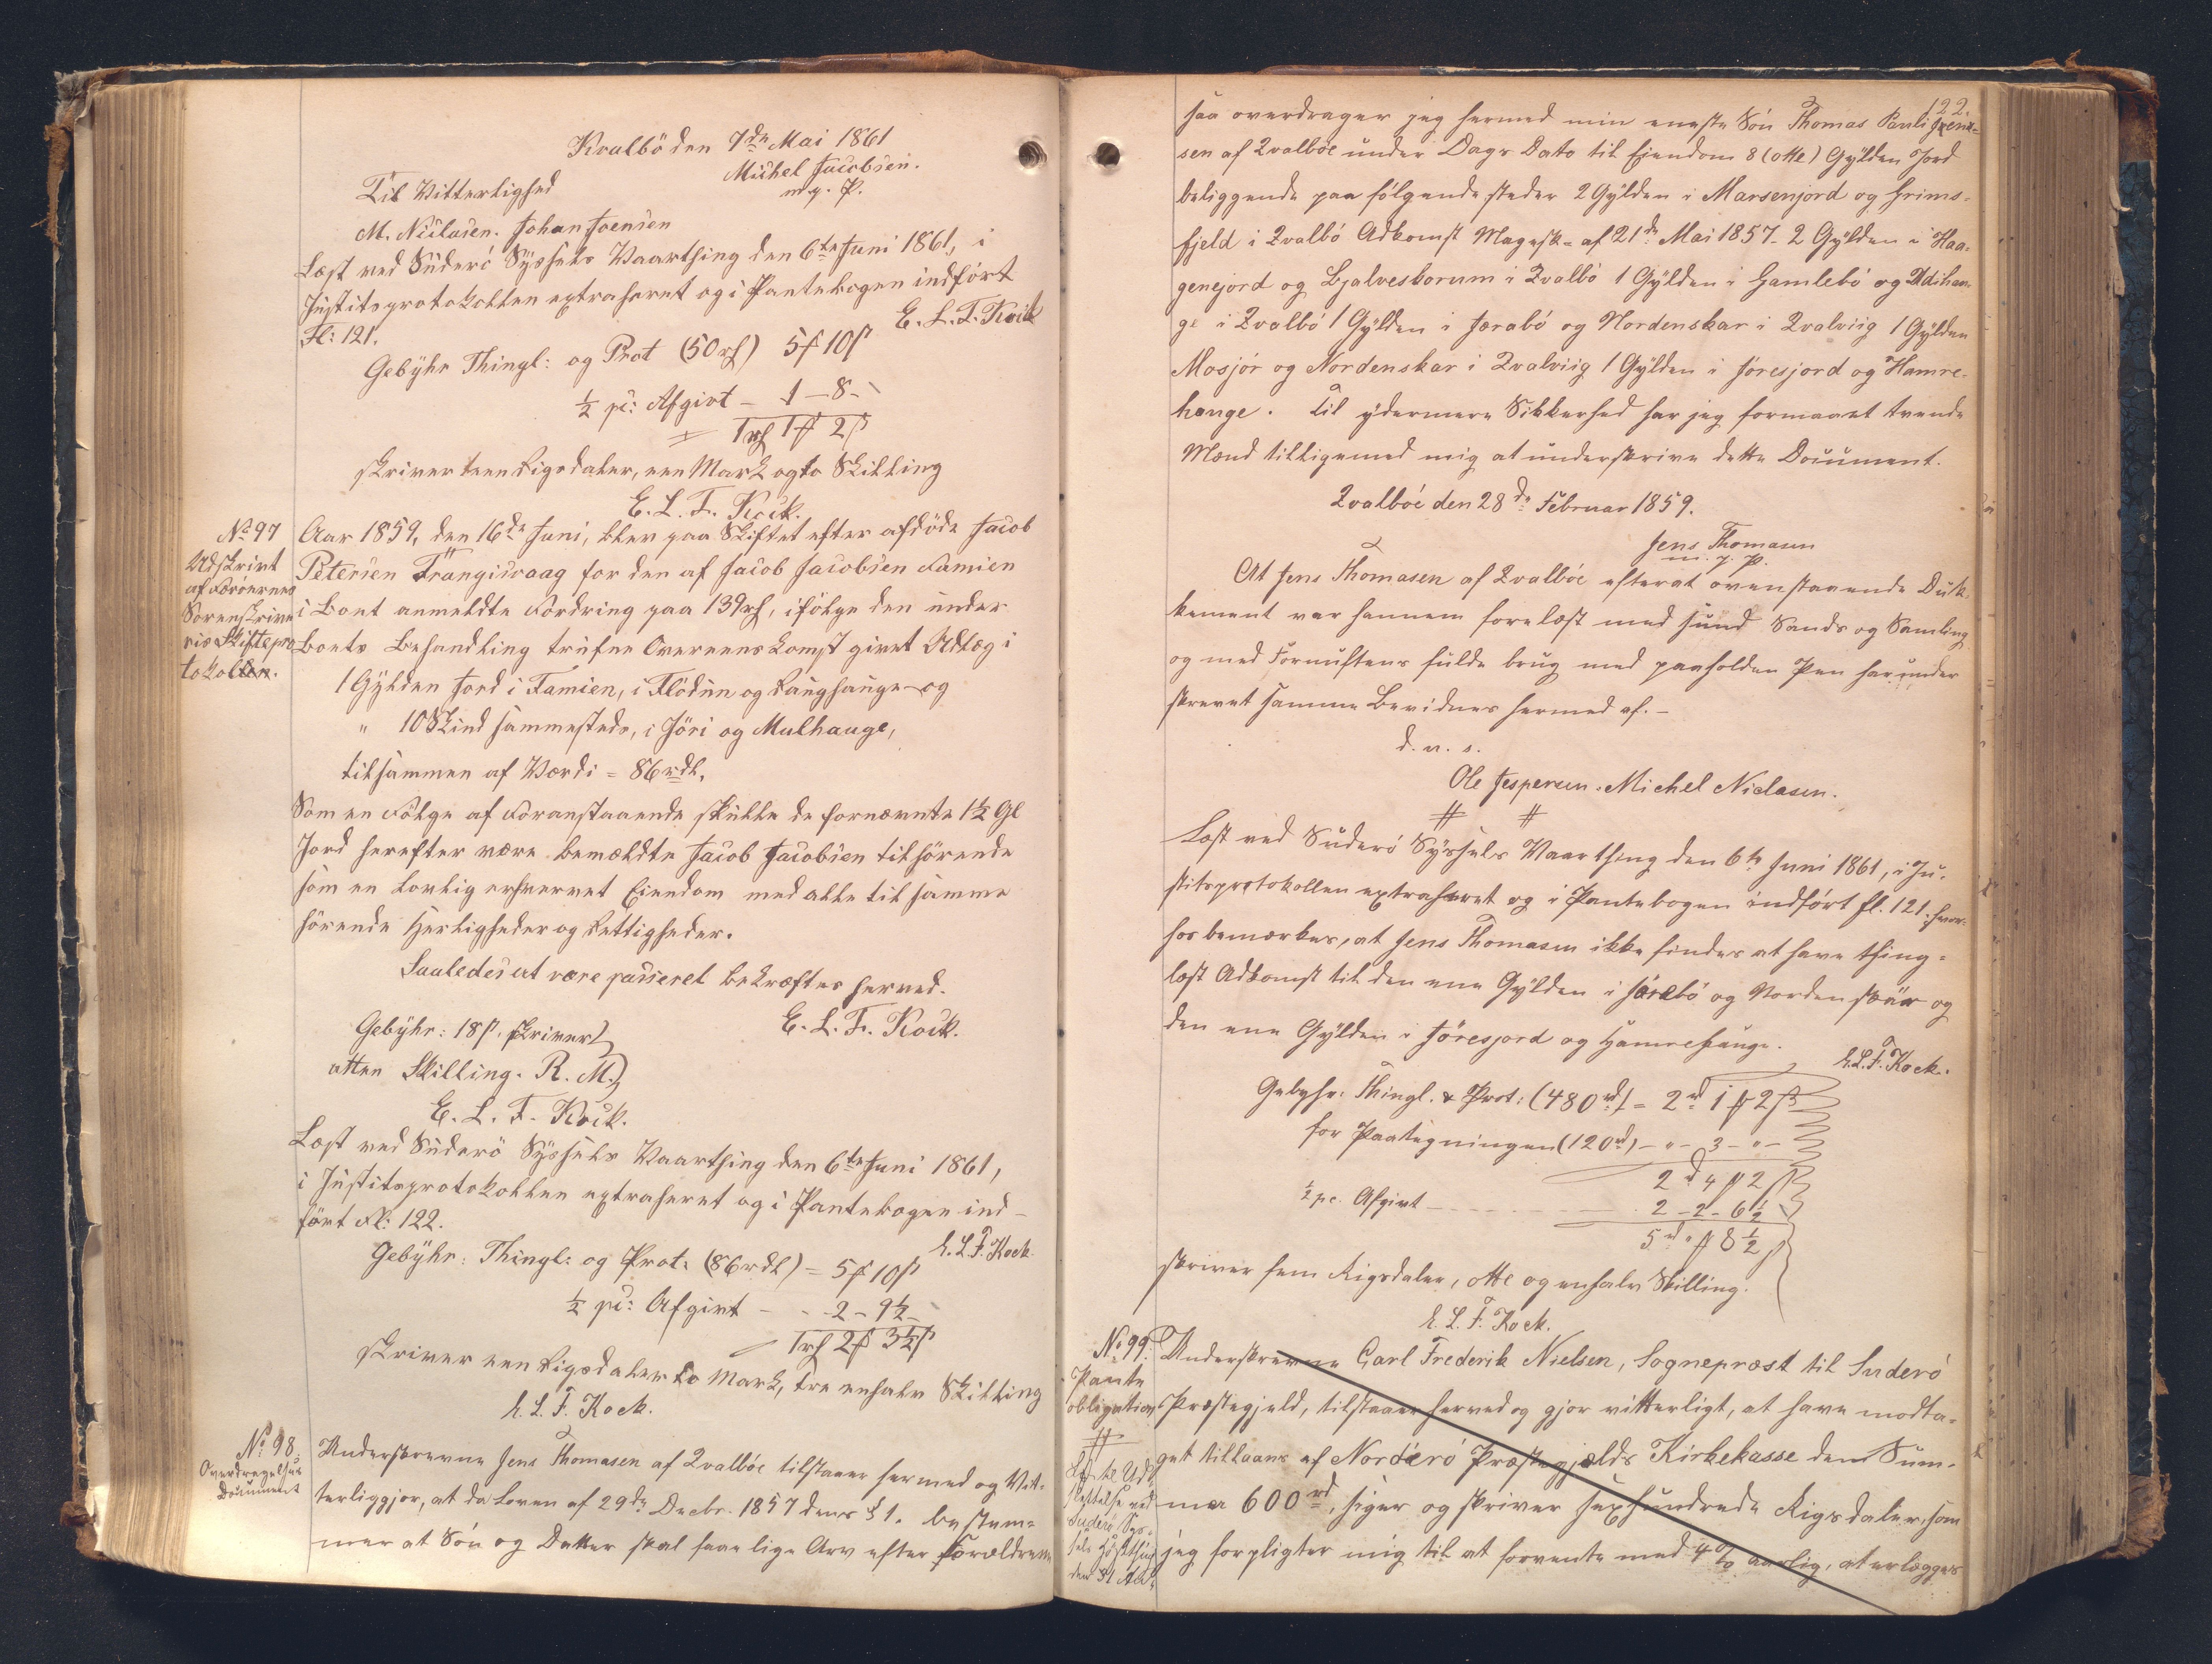 Kvalbö den 7de Mai 1861
Michel Jacobsen.
m. p. P.
Til Vitterlighed
M. Niclasen. Johan Joensen
Læst ved Süderö Syssels Vaarthing den 6te Juni 1861, i
Justitsprotokollen extraheret og i Pantebogen indført
Fl: 121.
E. L. F. Kock
Gebyhr Thingl: og Prot (50 rf) 5 f 10 ß
½ pc: Afgivt — 1 — 8 -
1 rf 1 f 2 ß
skriver een Rigsdaler, een Mark og to Skilling
E. L. F. Kock.
No 97
Udskrivt
af Færöernes
Sorenskrive
ries Skiftepro
tokollen.
Aar 1859, den 16de Juni, blev paa Skiftet efter afdöde Jacob
Petersen Trangisvaag for den af Jacob Jacobsen Famien
i Boet anmeldte Fordring paa 139 rf, ifölge den under
Boets Behandling trufne Overeenskomst givet Udlæg i
1 Gylden Jord i Famien, i Flödun og Laughauge og
" 10 Skind sammesteds, i Jöri og Mulhauge,
tilsammen af Værdi = 86 rdl.
Som en Fölge af Foranstaaende skulle de fornævnte 1½ Gl
Jord herefter være bemældte Jacob Jacobsen tilhörende
som en lovlig erhvervet Eiendom med alle til samme
hörende Herligheder og Rettigheder.
Saaledes at være passeret bekræftes herved.
E. L. F. Kock.
Gebyhr: 18 ß, skriver
atten Skilling. R. M.
E. L. F. Kock.
Læst ved Süderö Syssels Vaarthing den 6te Juni 1861,
i Justitsprotokollen extraheret og i Pantebogen ind-
fört Fl: 122.
E. L. F. Kock
Gebyhr: Thingl: og Prot: (86 rdl) = 5 f 10 ß
½ pc: Afgivt — - 2 - 9½ -
1 rf 2 f 3½ ß
skriver een Rigsdaler to Mark, tre en halv Skilling
E. L. F. Kock.
No 98.
Overdragelses
Document
Underskrevne Jens Thomasen af Qvalböe tilstaaer hermed og Vit-
terliggjör, at da Loven af 29de Decbr. 1857 dens § 1. bestem-
mer at Sön og Datter skal faae lige Arv efter Forældrene
122.
saa overdrager jeg hermed min eneste Sön Thomas Pauli Jens-
sen af Qvalböe under Dags Dato til Eiendom 8 (otte) Gylden Jord
beliggende paa fölgende steder 2 Gylden i Marsenjord og Grims-
fjeld i Qvalbö Adkomst Magesk- af 21de Mai 1857 - 2 Gylden i Haa-
genejord og Bjalvesborum i Qvalbö 1 Gylden i Gamlebö og Udihan-
ge i Qvalbö 1 Gylden i Færabö og Nordenskar i Qvalviig 1 Gylden
Mosjör og Nordenskar i Qvalviig 1 Gylden i Jöresjord og Hamre-
hange. Til ydermere Sikkerhed har jeg formaaet tvende
Mænd tilligemed mig at underskrive dette Document.
Qvalböe den 28de Februar 1859.
Jens Thomasen
m. f. P.
At Jens Thomasen af Qvalböe efterat ovenstaaende Duk-
kement var hannem forelæst med sund Sands og Samling
og med Fornuftens fulde brug med paaholden Pen har under
skrevet samme Bevidnes hermed af. -
d. u. s.
Ole Jespersen. Michel Niclasen.
Læst ved Suderö Syssels Vaarthing den 6te Juni 1861, i Ju-
stitsprotokollen extraheret og i Pantebogen indfört fl. 121. hvor-
hos bemærkes, at Jens Thomasen ikke findes at have thing-
læst Adkomst til den ene Gylden i Færabö og Nordenskär og
den ene Gylden i Jöresjord og Hamrehauge.
E. L. F. Kock.
Gebyhr: Thingl. & Prot: (480 rd) = 2 rd 1 f 2 ß
for Paategningen (120 rd) - " - 3 - " -
2 d 4 f 2 ß
½ pc. Afgivt - - - - 2 - 2 - 6½
5 rd " f 8½ ß
skriver fem Rigsdaler, otte og en halv Skilling.
E. L. F. Kock.
No 99.
Pante
obligation
Underskrevne Carl Frederik Nielsen, Sognepræst til Suderö
Præstegjeld, tilstaaer herved og gjör vitterligt, at have modta-
get tillaans af Norderö Præstegjælds Kirkekasse den Sum-
ma 600 rd, siger og skriver sexhundrede Rigsdaler, som
jeg forpligter mig til at forrente med 4 % aarlig, at erlægges
Læst til Uds
slettelse ved
Suderö Sys-
sels Höstthing
den 31